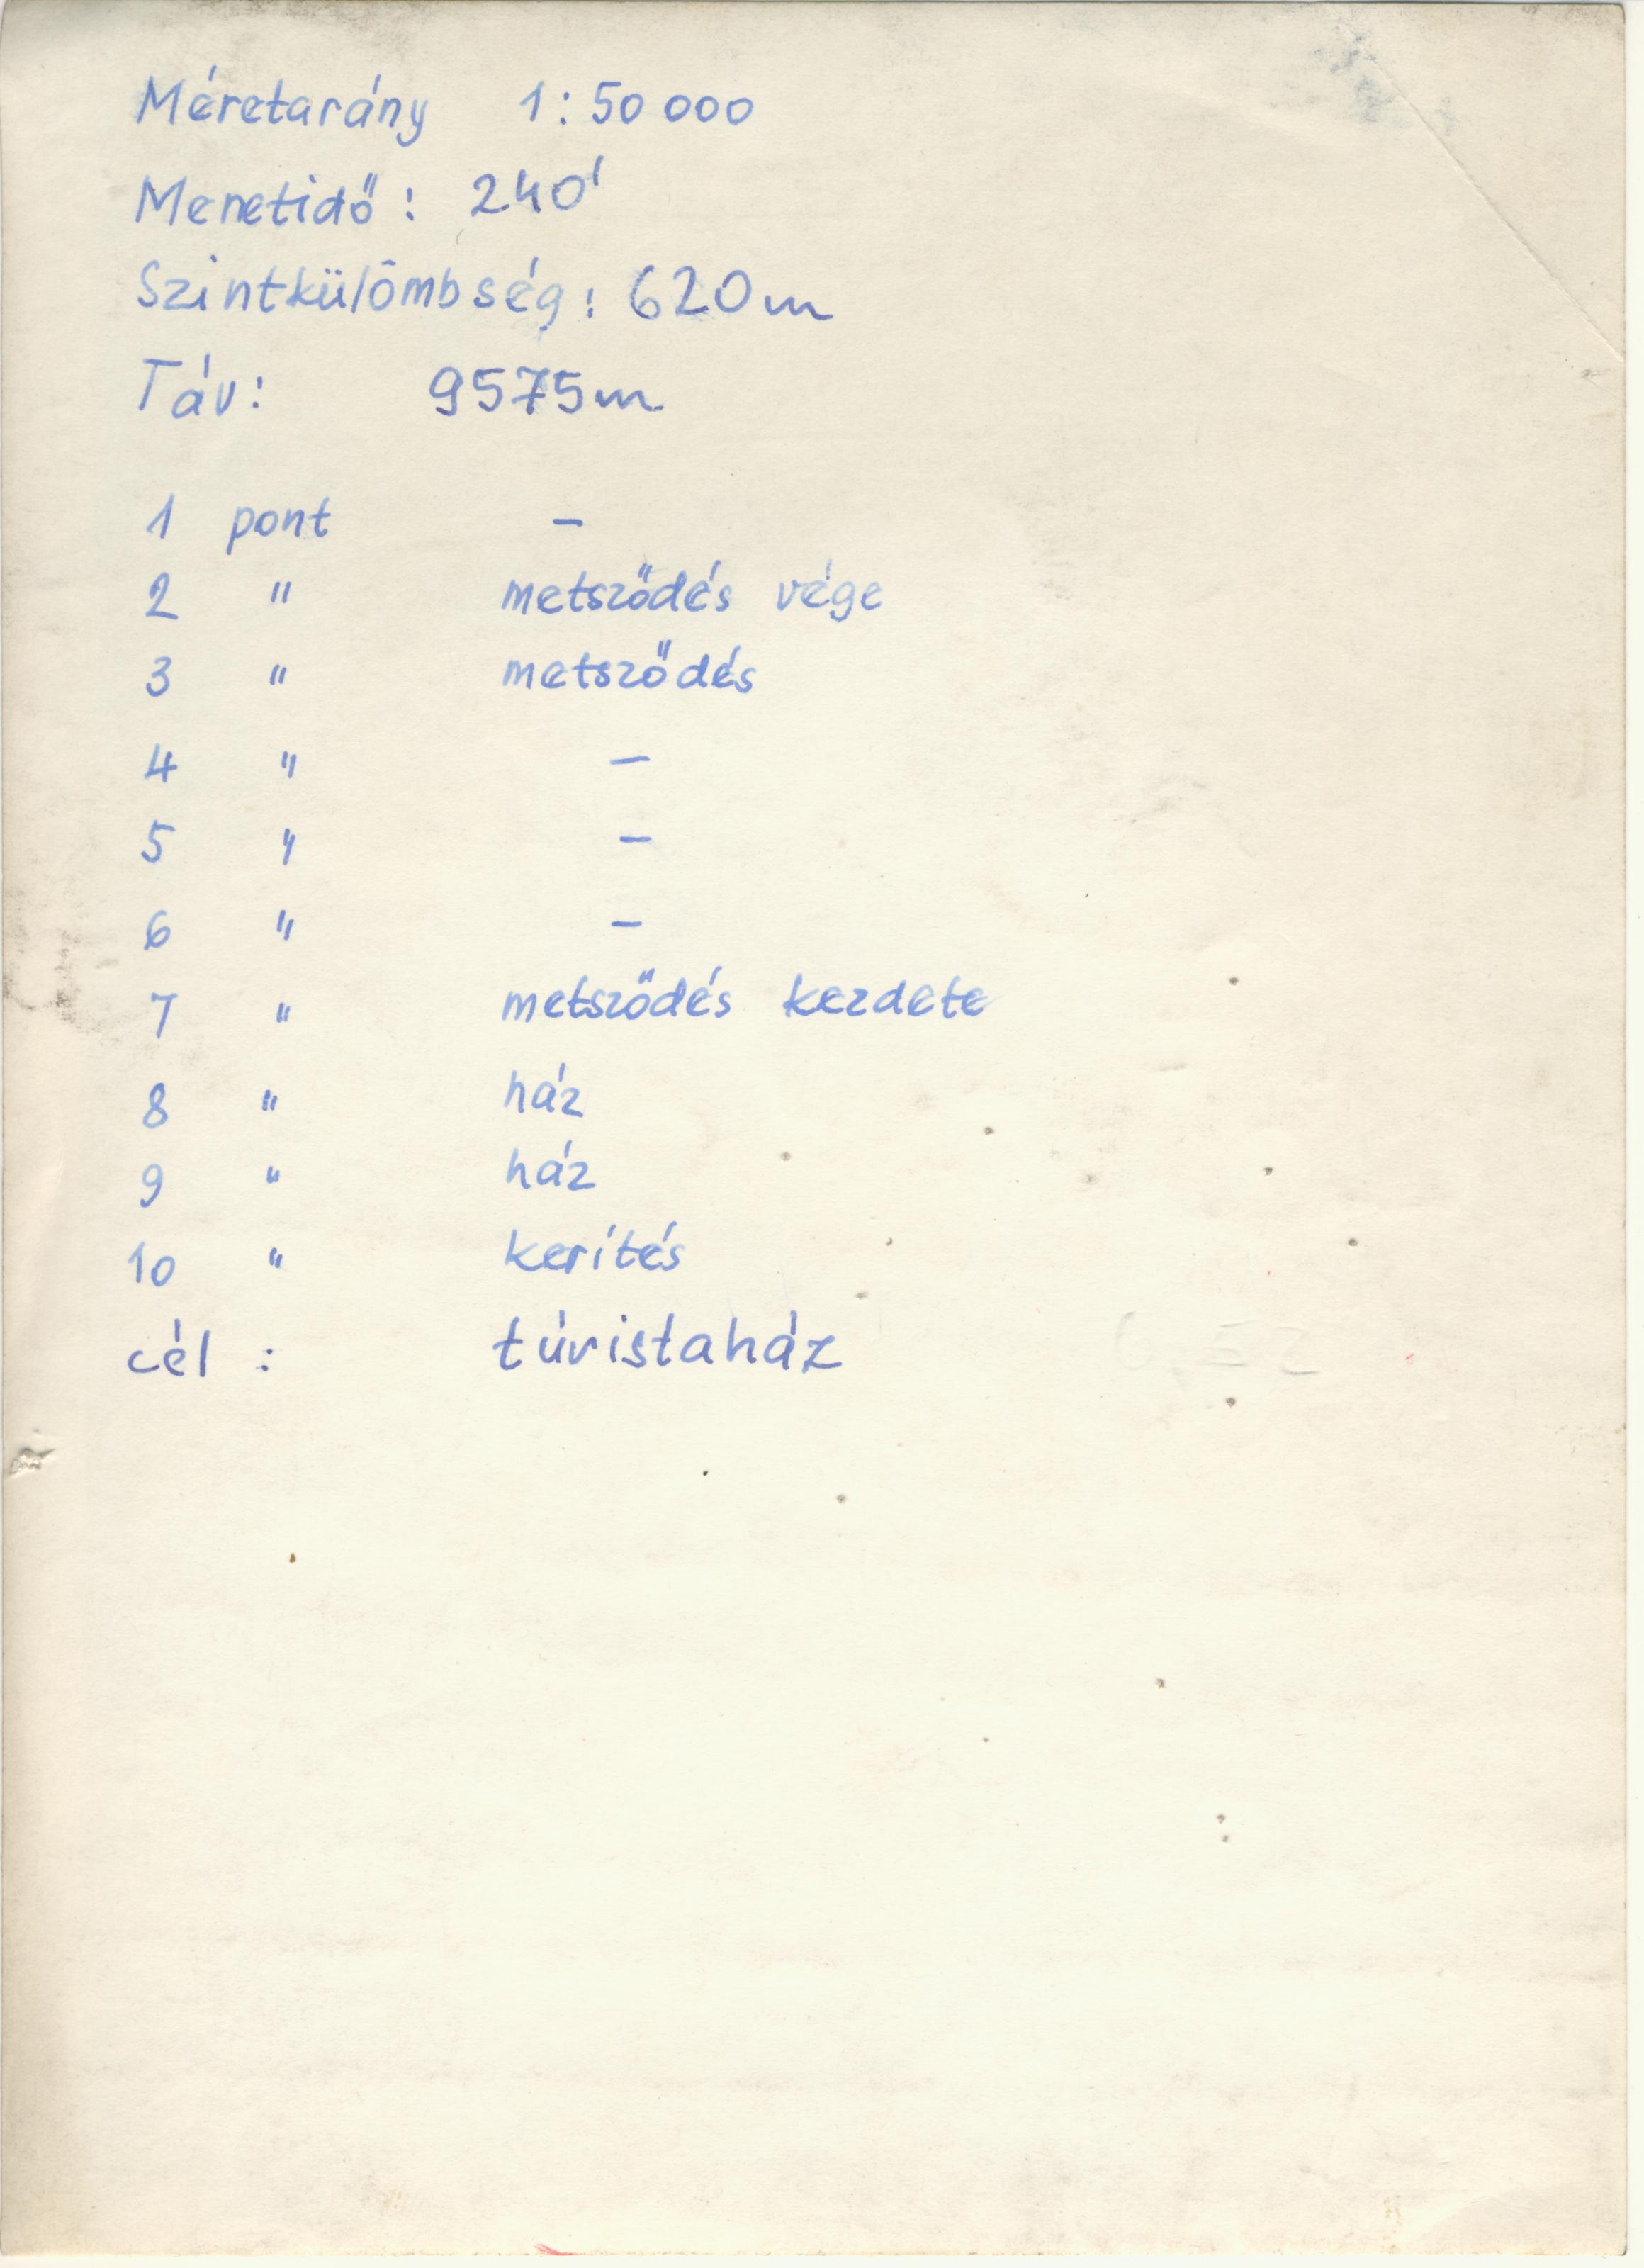 Méretarány 1:50 000
Menetidő: 240'
Szintkülömbség: 620m
Táv: 9575m
1 pont –
2 " metsződés vége
3 " metsződés
4 " –
5 " –
6 " –
7 " metsződés kezdete
8 " ház
9 " ház
10 " kerítés
cél : túristaház